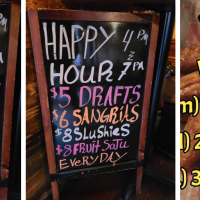 HAPPY 4 PM
HOUR 7 PM
$5 DRAFTS
$6 SANGRIAS
$8 SLUSHIES
$8 FRUIT SOJU
EVERYDAY
m)
) 2
) 3